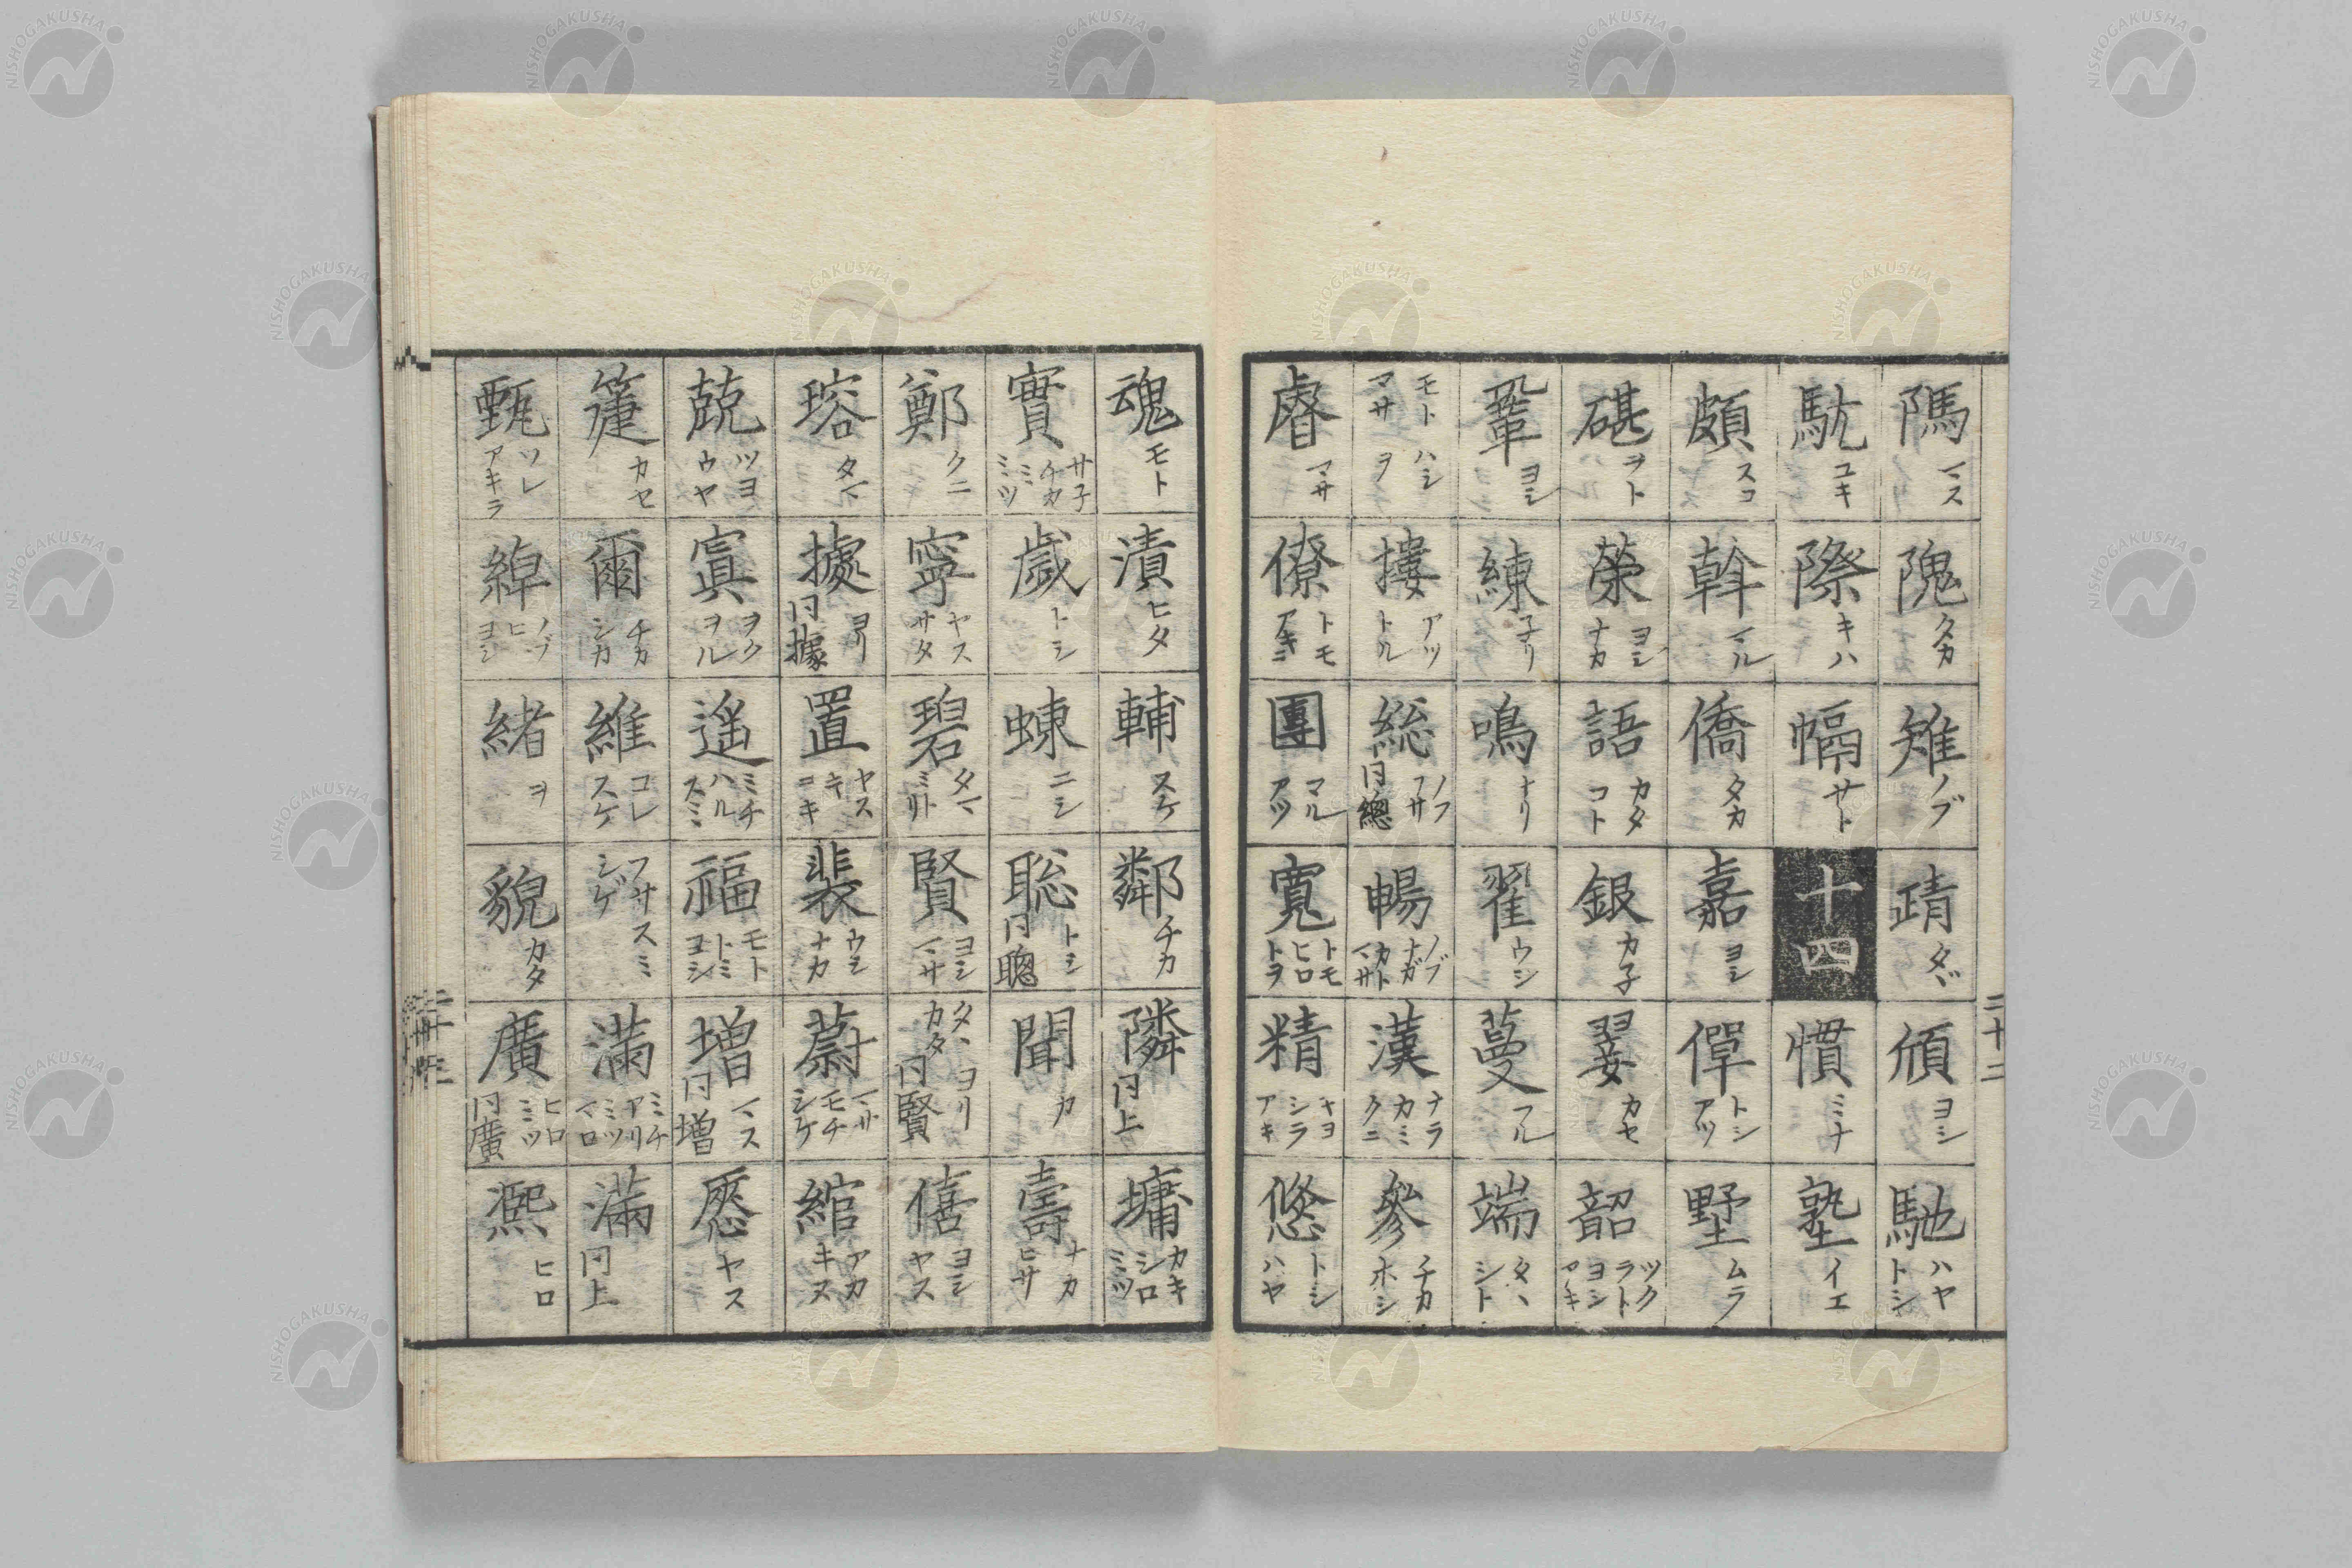 隝 マス
隗 タカ
雉 ノブ
靖 タヾ
頎 ヨシ
馳 ハヤ トシ
馼 ユキ
際 キハ
幅 サト
十四
慣 ミナ
塾 イエ
頗 スコ
斡 マル
僑 タカ
嘉 ヨシ
僤 トシ アツ
墅 ムラ
碪 ヲト
榮 ヨシ ナカ
語 カタ コト
銀 カ子
翣 カセ
韶 ツク ラト ヨシ アキ
鞏 ヨシ
練 子リ
鳴 ナリ
翟 ウシ
蔓 フル
端 タヽ シト
モト ハシ マサ ヲ
摟 アツ トル
総 ノフ フサ 同總
暢 ノブ ナガ カト マサ
漢 ナラ カミ クニ
參 チカ ホシ
睿 マサ
僚 トモ アキラ
團 マル アツ
寬 トモ ヒロ トヲ
精 キヨ シラ アキ
悠 トシ ハヤ
二十二
魂 モト
漬 ヒタ
輔 スケ
鄰 チカ
隣 同上
墉 カキ シロ ミツ
實 サ子 チカ ミミツ
歳 トシ
蝀 ニシ
聡 トシ 同聰
聞 カ
壽 ナカ ヒサ
鄭 クニ
寧 ヤス サタ
碧 タマ ミトリ
賢 ヨシ マサ
タヽ カタ ヨリ 同賢
僖 ヨシ ヤス
瑢 タマ
據 ヨリ 同據
置 ヤス キ コキ
裴 ウシ ナカ
蔚 マサ モチ シケ
綰 アカ キヌ
兢 ツヨ ウヤ
寘 ヲク ヲル
遙 ミチ ハル スミ
福 モト トミ ヨシ
増 マス 同增
愿 ヤス
箑 カセ
爾 チカ シカ
維 コレ スケ
フサ スミ シゲ
滿 ミチ アリ ミツ マロ
滿 同上
甄 ツレ アキラ
綽 ノブ ヒ ヨシ
緒 ヲ
貌 カタ
廣 ヒロ ミツ 同廣
熙 ヒロ